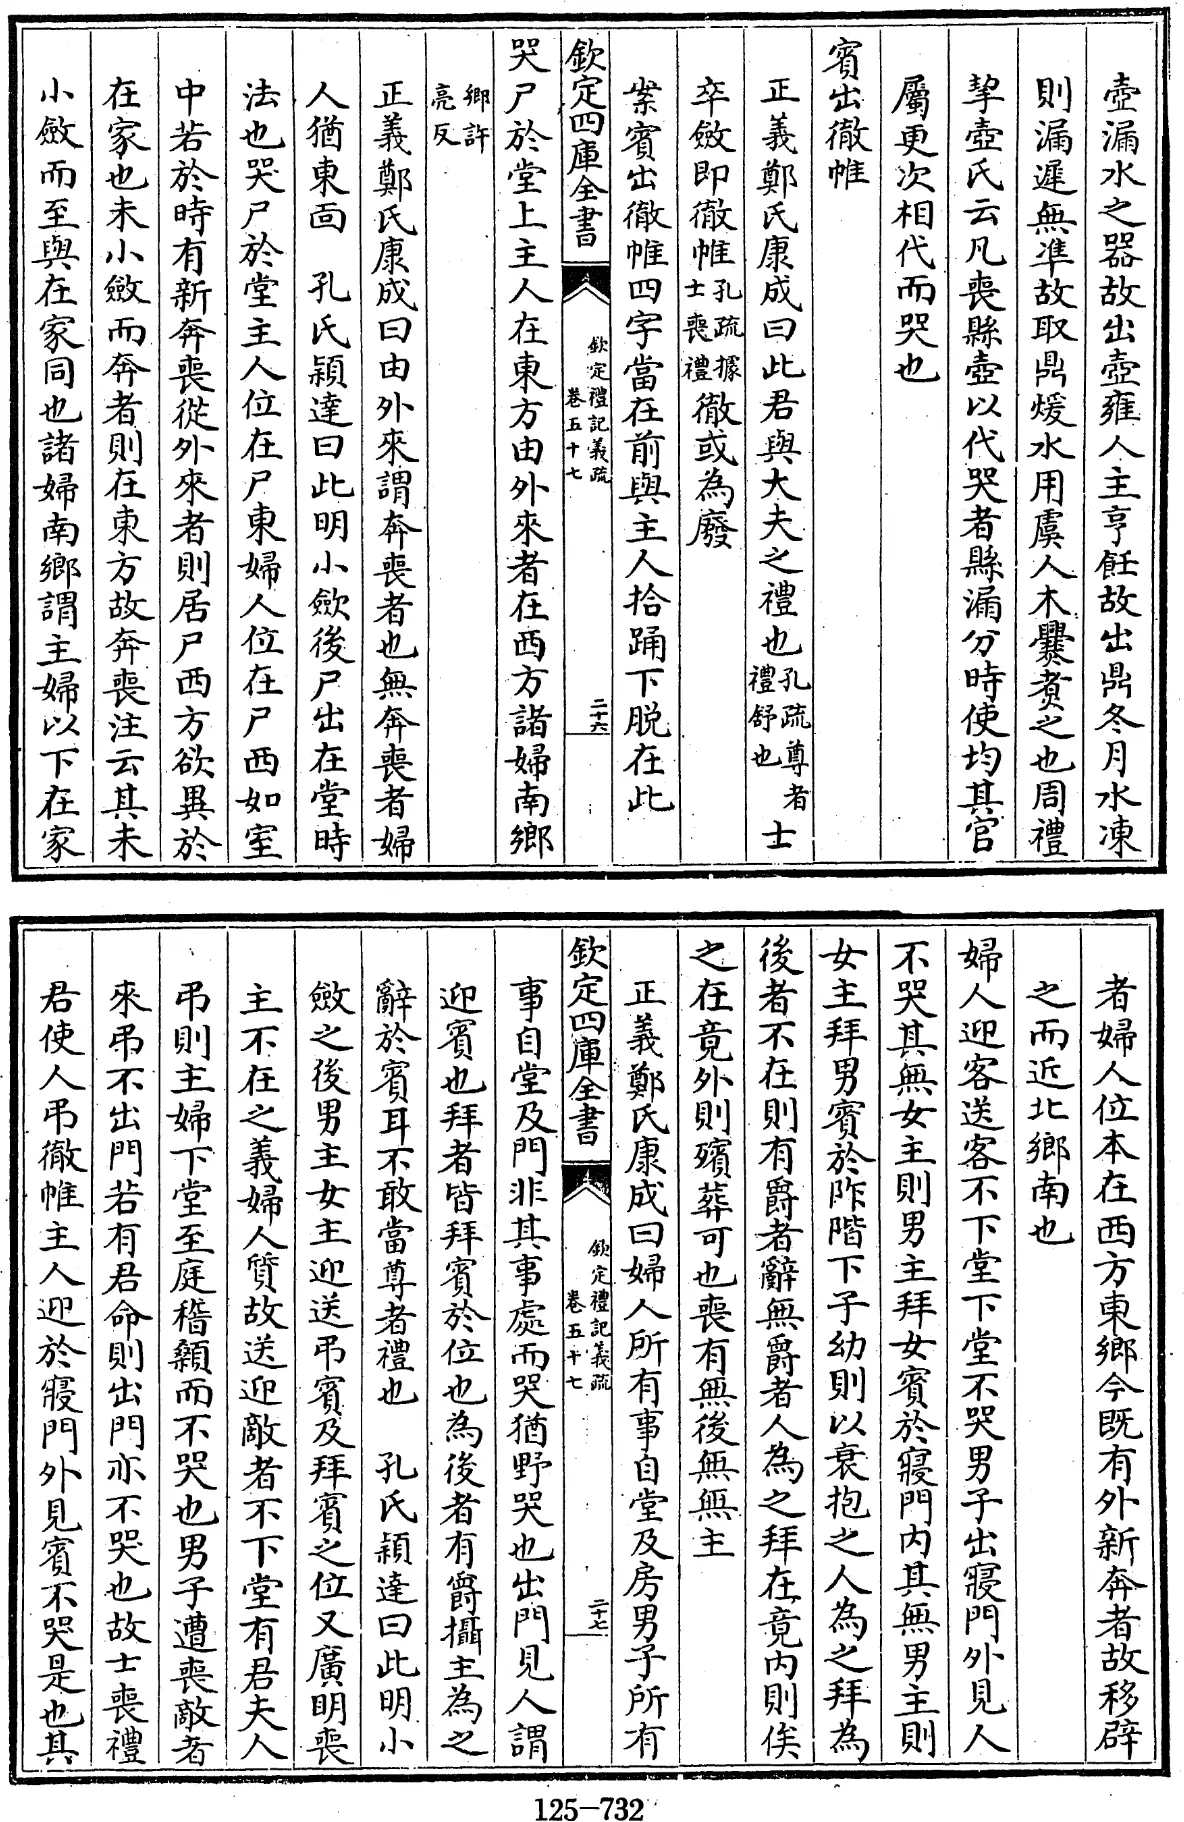 壺漏水之器故出壺雍人主亨飪故出鼎冬月水凍
則漏遲無凖故取鼎煖水用虞人木爨煑之也周禮
挈壺氏云凡喪縣壺以代哭者縣漏分時使均其官
屬更次相代而哭也
賓出徹帷
正義鄭氏康成曰此君與大夫之禮也孔疏尊者禮舒也士
卒斂即徹帷孔疏據士喪禮徹或為廢
案賓出徹帷四字當在前與主人拾踊下脱在此
欽定四庫全書
欽定禮記義疏
卷五十七
二十六
哭尸於堂上主人在東方由外來者在西方諸婦南鄉
鄉許亮反
正義鄭氏康成曰由外來謂奔喪者也無奔喪者婦
人猶東面 孔氏穎達曰此明小歛後尸出在堂時
法也哭尸於堂主人位在尸東婦人位在尸西如室
中若於時有新奔喪從外來者則居尸西方欲異於
在家也未小斂而奔者則在東方故奔喪注云其未
小斂而至與在家同也諸婦南鄉謂主婦以下在家
者婦人位本在西方東鄉今既有外新奔者故移辟
之而近北鄉南也
婦人迎客送客不下堂下堂不哭男子出寢門外見人
不哭其無女主則男主拜女賓於寢門内其無男主則
女主拜男賓於阼階下子幼則以衰抱之人為之拜為
後者不在則有爵者辭無爵者人為之拜在竟内則俟
之在竟外則殯葬可也喪有無後無無主
正義鄭氏康成曰婦人所有事自堂及房男子所有
欽定四庫全書
欽定禮記義疏
卷五十七
二十七
事自堂及門非其事處而哭猶野哭也出門見人謂
迎賓也拜者皆拜賓於位也為後者有爵攝主為之
辭於賓耳不敢當尊者禮也 孔氏穎達曰此明小
斂之後男主女主迎送弔賓及拜賓之位又廣明喪
主不在之義婦人質故送迎敵者不下堂有君夫人
弔則主婦下堂至庭稽顙而不哭也男子遭喪敵者
來弔不出門若有君命則出門亦不哭也故士喪禮
君使人弔徹帷主人迎於寢門外見賓不哭是也其
125-732